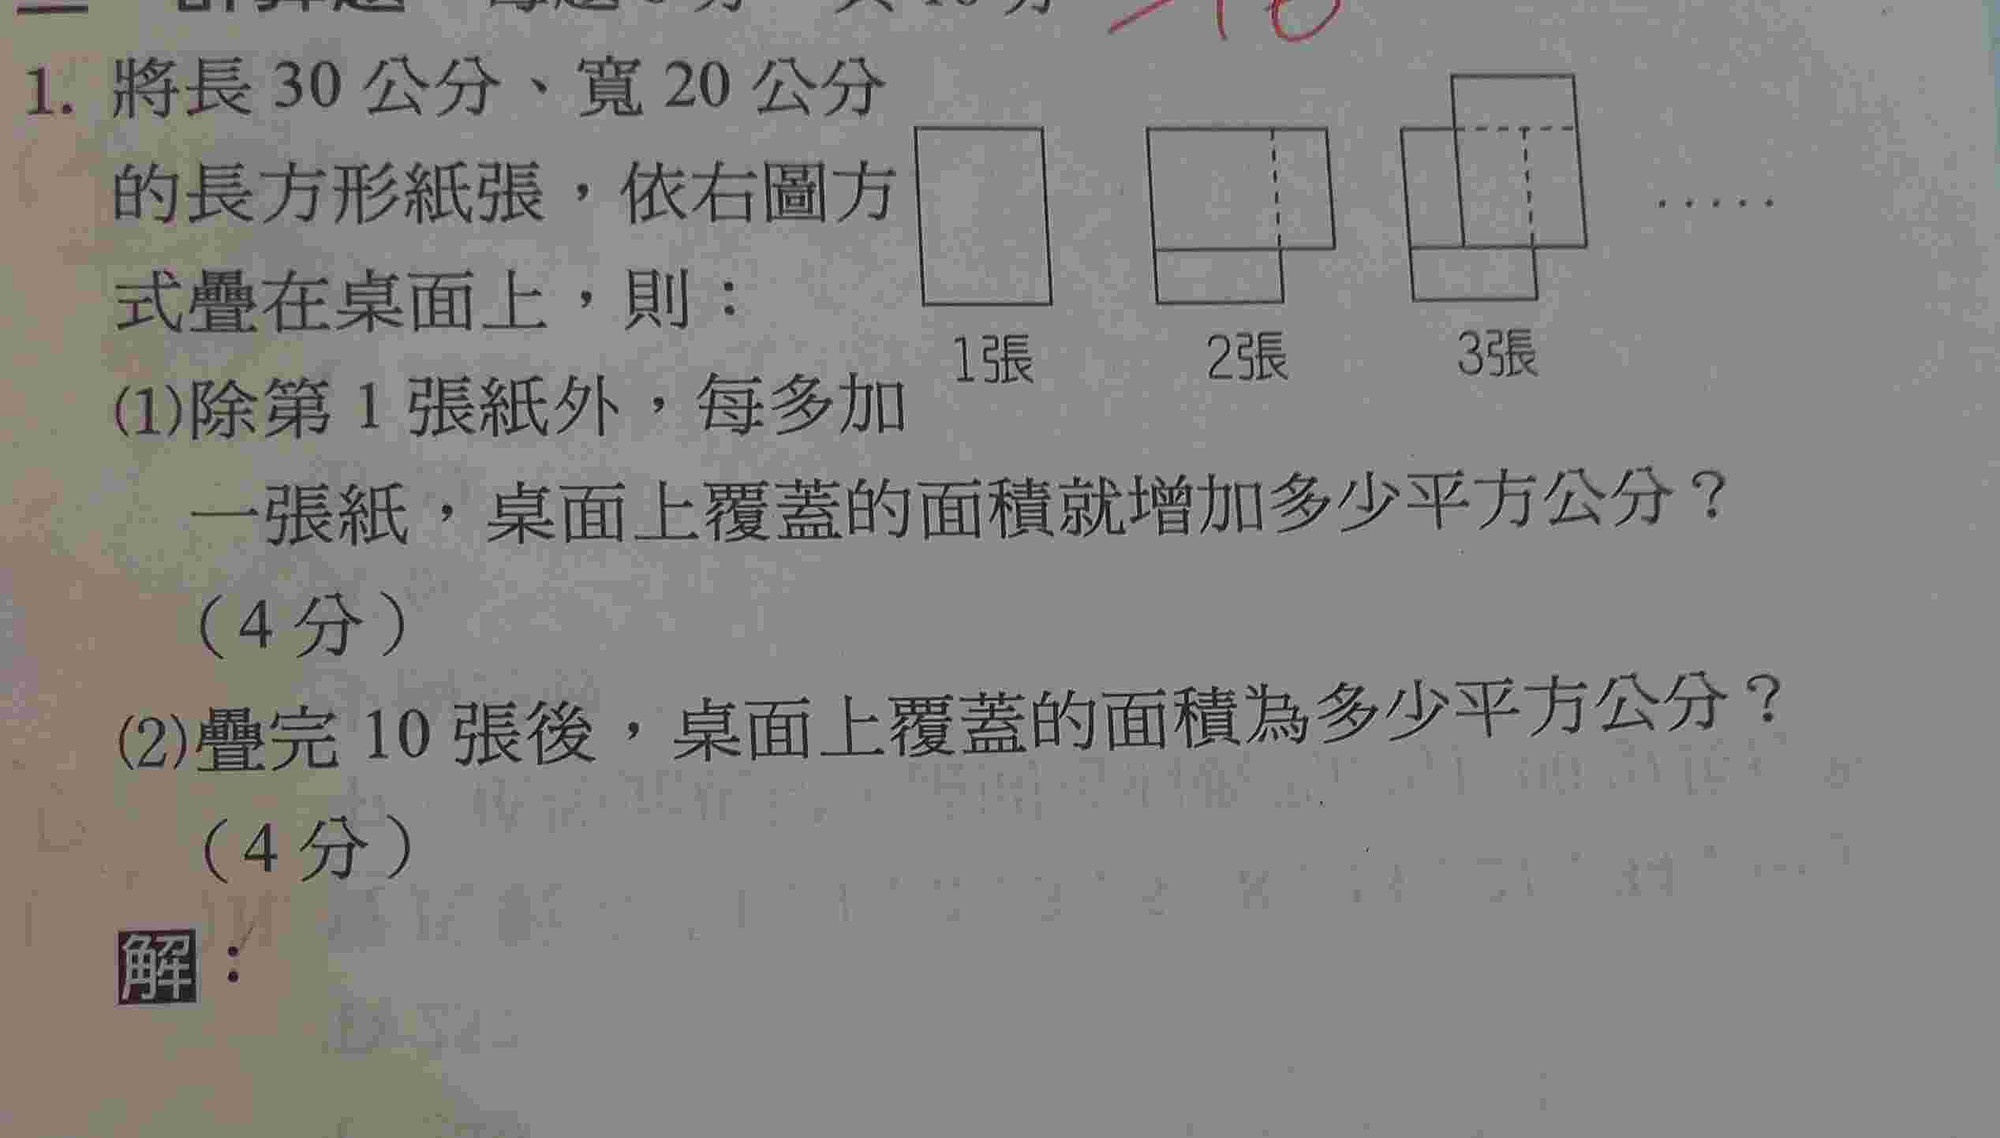 1. 將長 30 公分、寬 20 公分
的長方形紙張，依右圖方
式疊在桌面上，則：
1張 2張 3張 ·····
(1)除第 1 張紙外，每多加
一張紙，桌面上覆蓋的面積就增加多少平方公分？
（4 分）
(2)疊完 10 張後，桌面上覆蓋的面積為多少平方公分？
（4 分）
解：